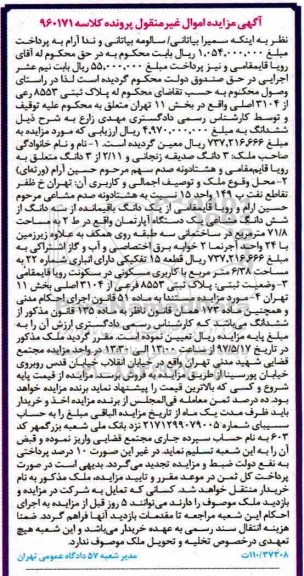 آگهی مزایده اموال غیرمنقول پرونده کلاسه ۹۶۰۱۷۱
نظر به اینکه سمیرا بیاتانی/ سالومه بیاتانی و ندا آرام به پرداخت
مبلغ ۱,۰۵۴,۰۰۰,۰۰۰ ریال بابت محکوم به در حق محکوم له آقای
رویا قایمقامی و نیز پرداخت مبلغ ۵۵,۰۰۰,۰۰۰ ریال بابت نیم عشر
اجرایی در حق صندوق دولت محکوم گردیده است لذا در راستای
وصول محکوم به حسب تقاضای محکوم له پلاک ثبتی ۸۵۵۳ فرعی
از ۳۱۰۴ اصلی واقع در بخش ۱۱ تهران متعلق به محکوم علیه توقیف
و توسط کارشناس رسمی دادگستری مهدی زارع به شرح ذیل
ششدانگ به مبلغ ۴,۹۷۰,۰۰۰,۰۰۰ ریال ارزیابی که مورد مزایده به
مبلغ ۷۳۷,۲۱۶,۶۶۶ ریال معین گردیده است. ۱- نام و نام خانوادگی
صاحب ملک: ۳ دانگ صدیقه زنجانی و ۲/۱۱ از ۳ دانگ متعلق به
رویا قایمقامی و هشتادونه صدم سهم مرحوم حسین آرام (ورثه‌ای)
۲- محل وقوع ملک و توصیف اجمالی و کاربری آن: تهران خ ظفر
تقاطع نفت پ ۱۴۹ واحد ۵ نسبت به هشتادونه صدم مشاعی مرحوم
حسین آرام و رویا قایمقامی از یک دانگ باقیمانده از سه دانگ از
شش دانگ مشاعی یک دستگاه آپارتمان واقع در ط ۲ به مساحت
۷۱/۸ مترمربع در ساختمانی سه طبقه روی همکف به علاوه زیرزمین
با ۲۴ واحد آجرنما ۲ خوابه برق اختصاصی و آب و گاز اشتراکی به
مبلغ ۷۳۷,۲۱۶,۶۶۶ ریال قطعه ۱۵ تفکیکی دارای انباری شماره ۲۲ به
مساحت ۶/۳۸ متر مربع با کاربری مسکونی در سکونت رویا قایمقامی
۳- وضعیت ثبتی: پلاک ثبتی ۸۵۵۳ فرعی از ۳۱۰۴ اصلی بخش ۱۱
تهران ۴- مورد مزایده مستندا به ماده ۵۱ قانون اجرای احکام مدنی
و همچنین ماده ۱۷۳ همان قانون ناظر به ماده ۱۳۵ قانون مذکور از
ششدانگ می‌باشد که کارشناس رسمی دادگستری ارزش آن را به
مبلغ پایه مزایده ریال تعیین نموده است. مقرر گردید ملک مذکور
در تاریخ ۹۷/۵/۱۷ از ساعت ۱۳:۰۰ الی ۱۳:۳۰ در واحد مزایده مجتمع
قضایی شهید مدنی تهران واقع در خیابان انقلاب خیابان قدس روبروی
خیابان پورسینا از طریق مزایده به فروش برسد. مزایده از قیمت پایه
شروع و کسی که بالاترین قیمت را پیشنهاد نماید برنده مزایده خواهد
بود. ده درصد ثمن معامله فی‌المجلس از برنده مزایده اخذ و خریدار
باید ظرف مدت یک ماه از تاریخ مزایده الباقی مبلغ را به حساب
سیبای شماره ۲۱۷۱۲۹۹۰۷۹۰۰۵ نزد بانک ملی شعبه بزرگمهر کد
۶۰۳ به نام حساب سپرده جاری مجتمع قضایی واریز نموده و قبض
آن را به این شعبه تسلیم نماید. در غیر این صورت ۱۰ درصد پرداختی
به نفع دولت ضبط و مزایده تجدید می‌گردد. بدیهی است در صورت
پرداخت کل ثمن در موعد مقرر و تایید مزایده، ملک مذکور به نام
خریدار منتقل خواهد شد. کسانی که تمایل به شرکت در مزایده و
بازدید ملک موصوف را دارند، می‌توانند ۵ روز قبل از مزایده به اجرای
احکام این شعبه مراجعه تا مقدمات بازدید آنها فراهم گردد. ضمنا
هزینه انتقال سند رسمی به عهده خریدار می‌باشد و این شعبه هیچ
تعهدی درخصوص تخلیه و تحویل ملک موصوف ندارد.
۱۱۰/۳۷۳۰۸/ت
مدیر شعبه ۵۷ دادگاه عمومی تهران